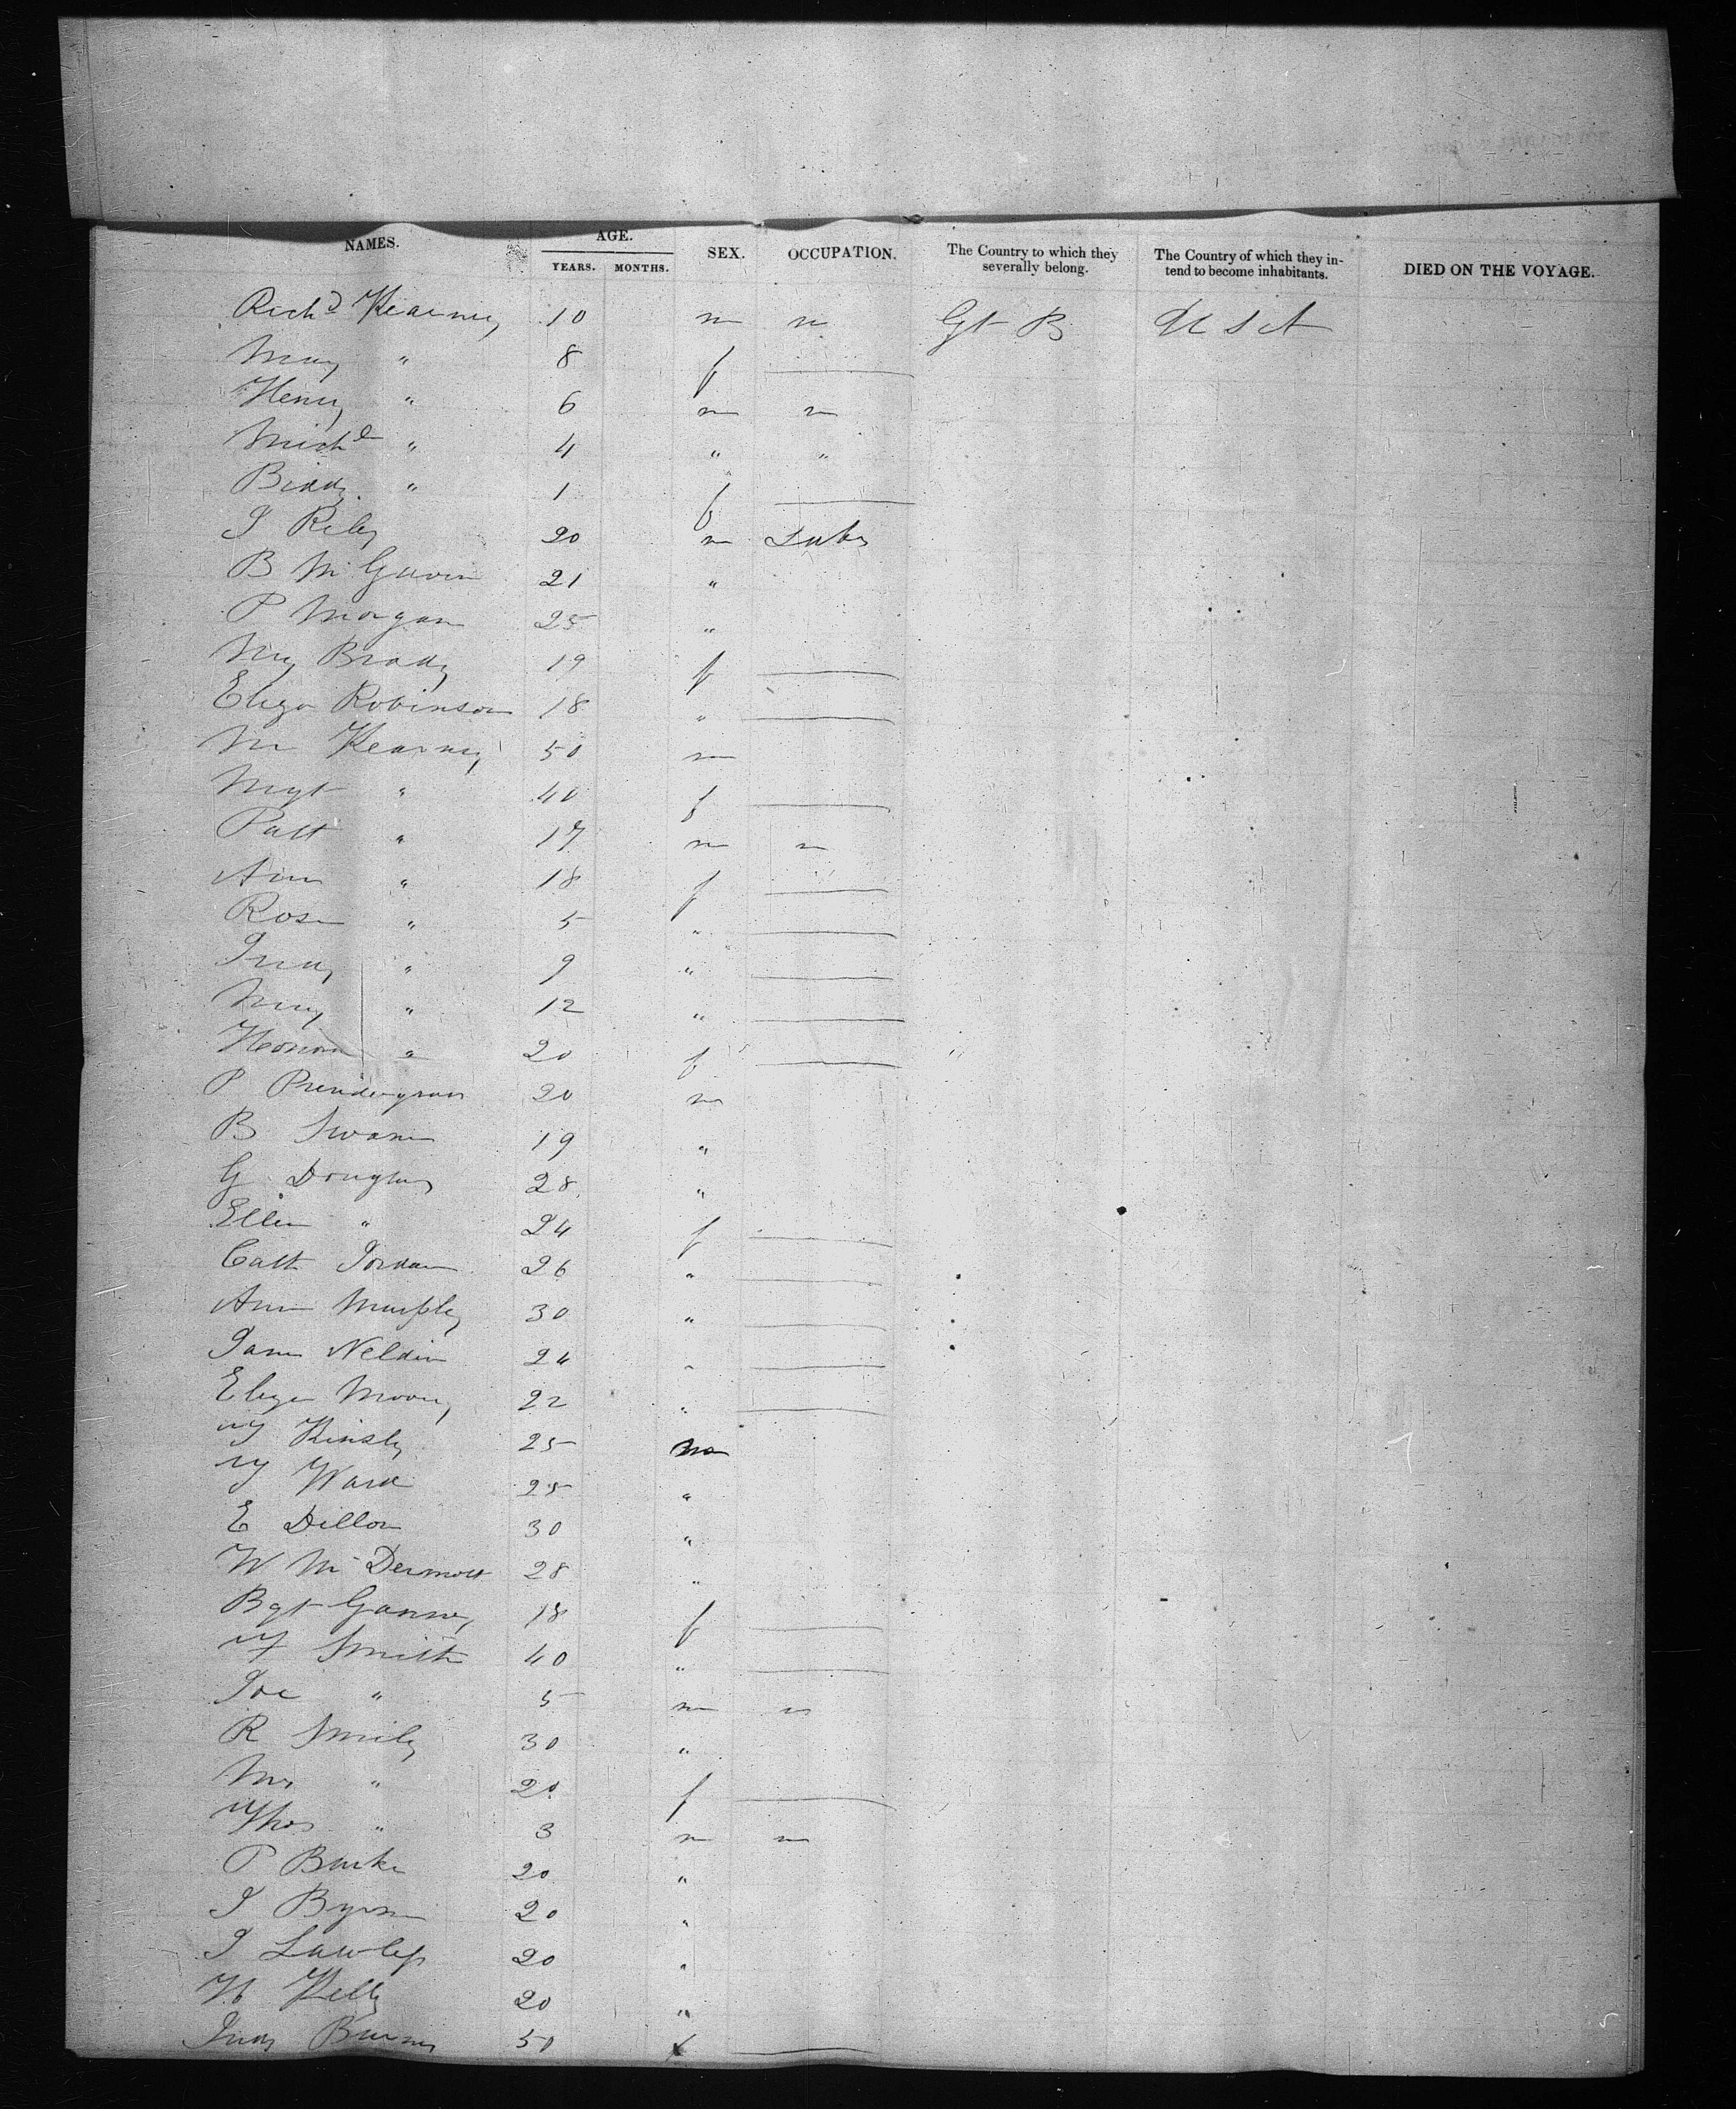 NAMES. AGE. YEARS. MONTHS. SEX. OCCUPATION. The Country to which they severally belong. The Country of which they intend to become inhabitants. DIED ON THE VOYAGE.
Richd Kearney 10 m n Gt B U S A
Mary " 8 f
Henry " 6 m n
Michl " 4 " "
Biddy " 1 f
J Riley 20 m Labr
B McGavin 21 "
P Morgan 25 "
My Brady 19 f
Eliza Robinson 18 "
M Kearney 50 m
Mgt " 40 f
Patt " 17 m n
Ann " 18 f
Rose " 5 "
Judy " 9 "
Mary " 12 "
Honora " 20 f
P Prendergrass 20 m
B Swann 19 "
G Douglas 28 "
Ellen " 24 f
Cath Jordan 26 "
Ann Murphy 30 "
Jane 24 "
Eliza Moony 22 "
T Kinsly 25 m
T Ward 25 "
E Dillon 30 "
W McDermott 28 "
Bgt 18 f
Smith 40 "
Joe " 5 m n
R Smily 30 "
Mr " 20 f
Thos " 3 m n
P Burke 20 "
J Byrne 20 "
J Lawler 20 "
Kelly 20 "
Judy Burns 50 f